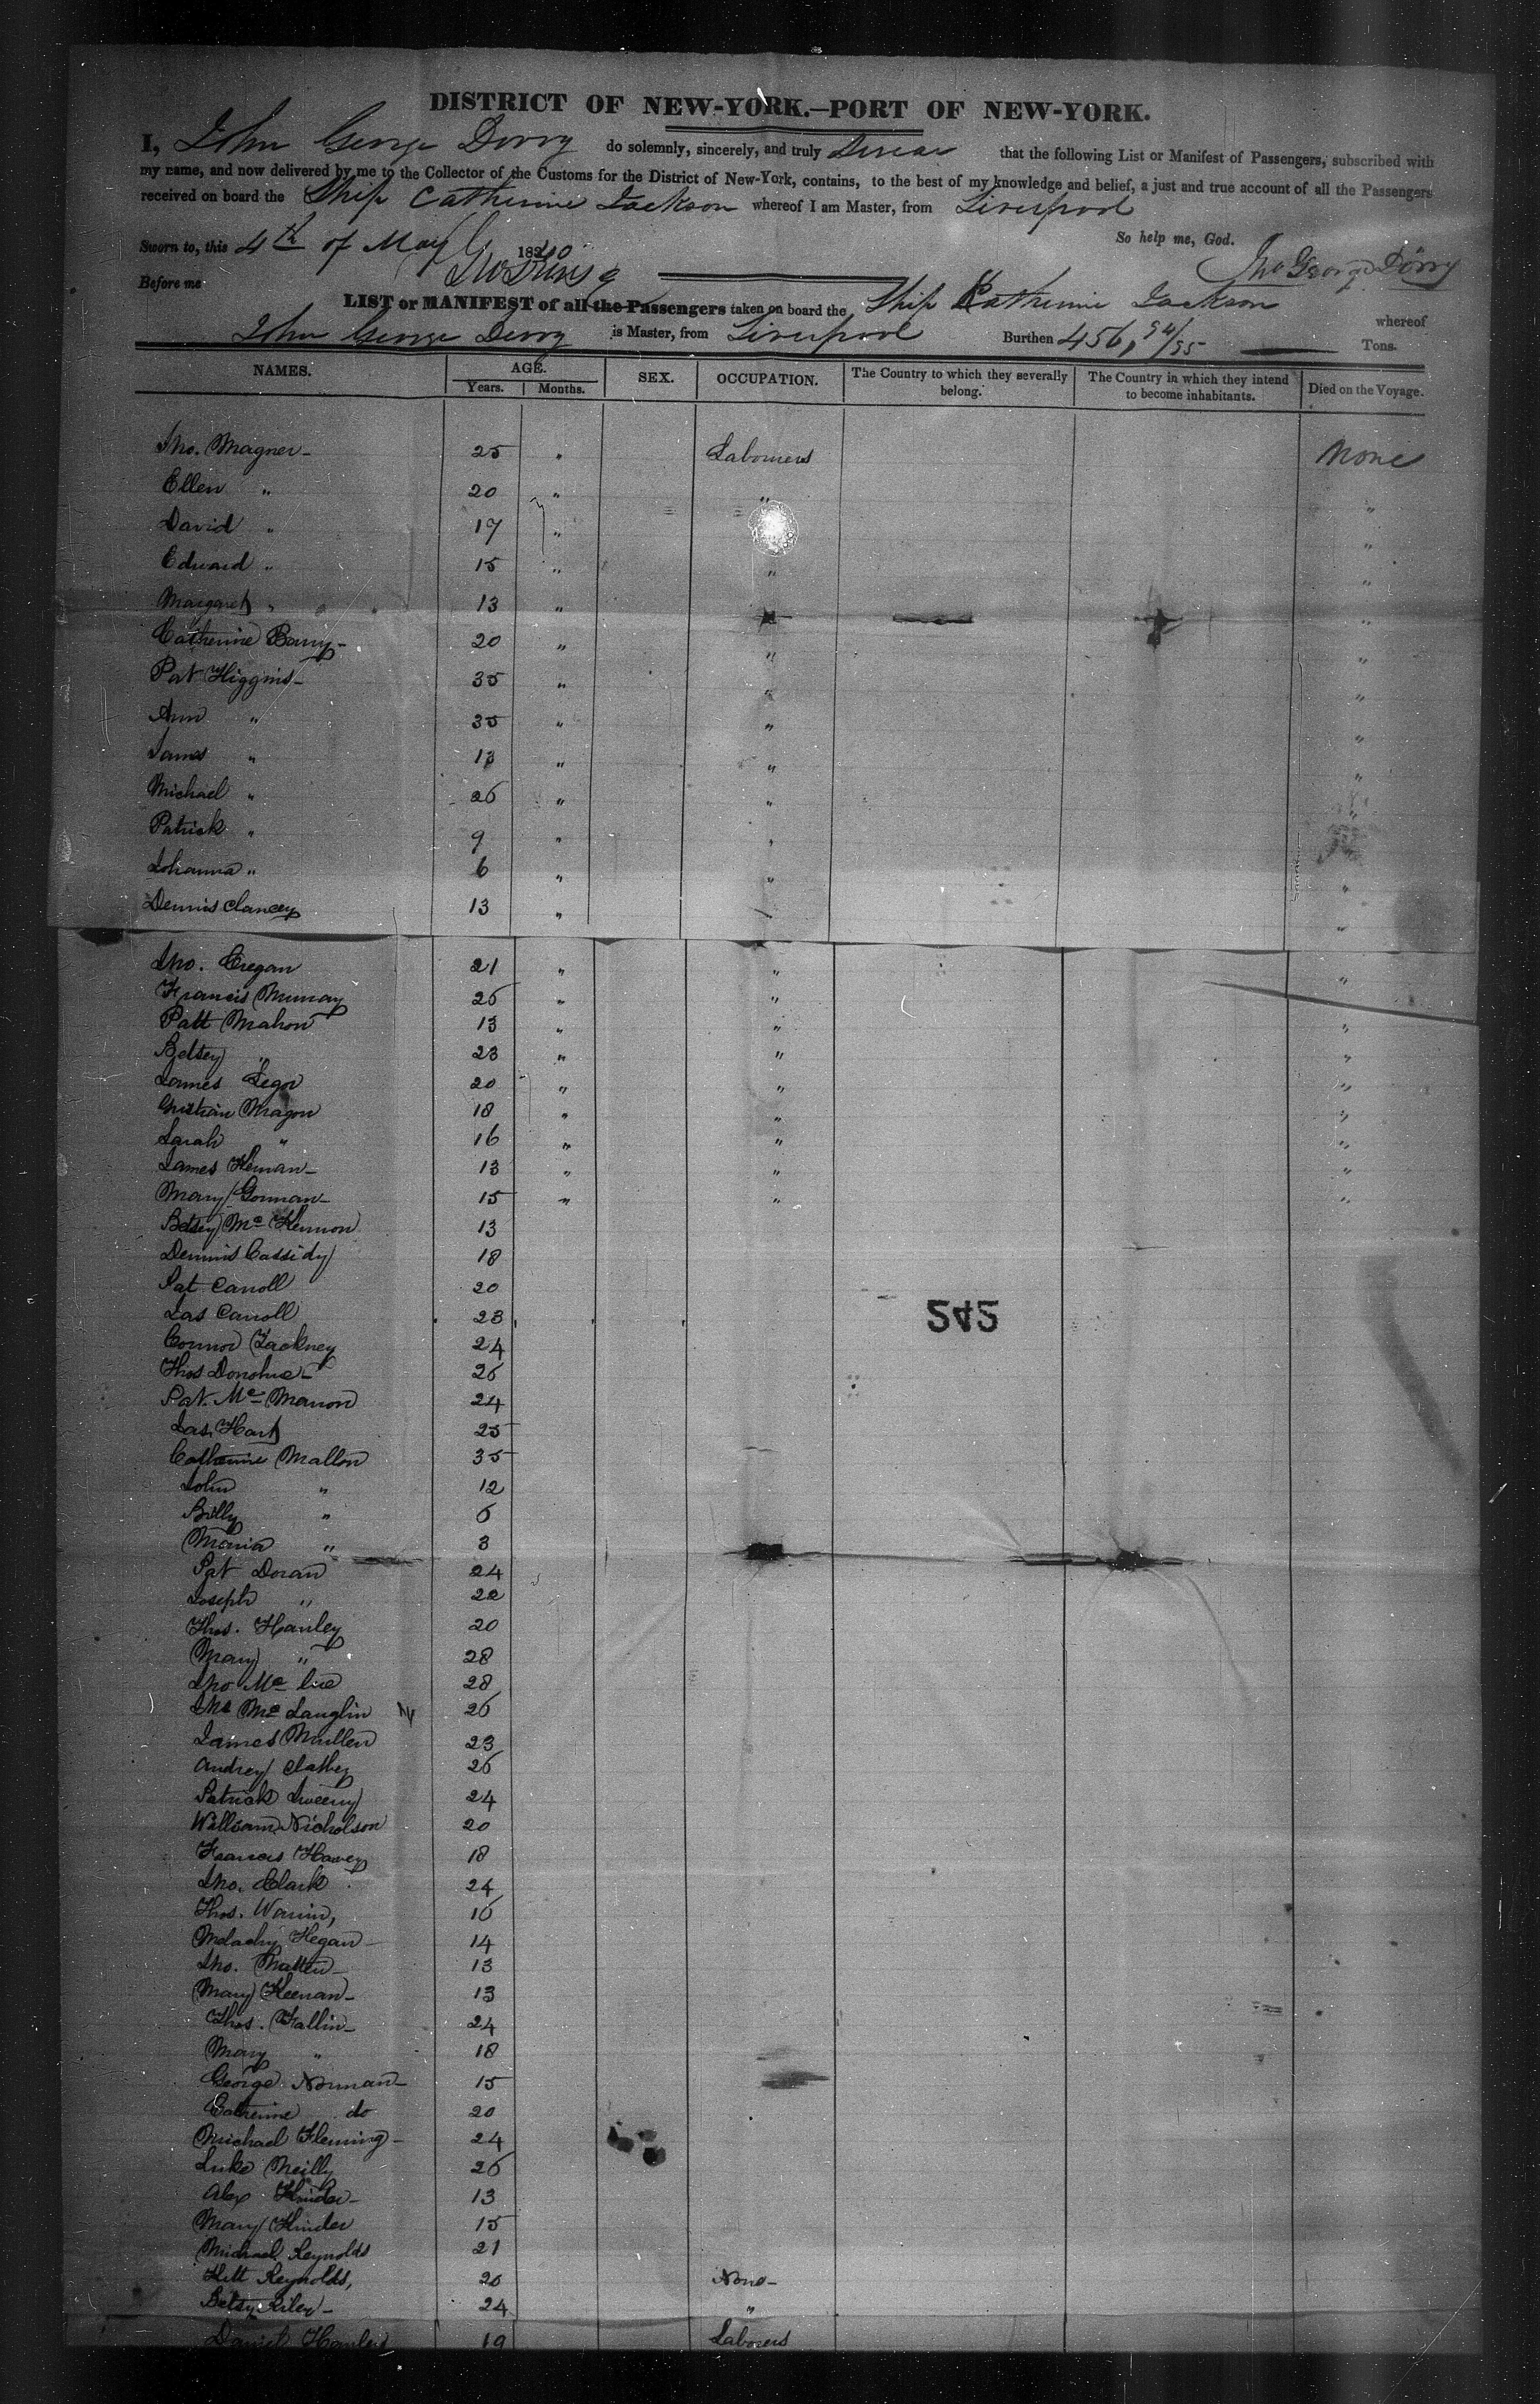 DISTRICT OF NEW-YORK.—PORT OF NEW-YORK.
I, John George Derry do solemnly, sincerely, and truly that the following List or Manifest of Passengers, subscribed with
my name, and now delivered by me to the Collector of the Customs for the District of New-York, contains, to the best of my knowledge and belief, a just and true account of all the Passengers
received on board the Ship Catherine Jackson whereof I am Master, from Liverpool
So help me, God.
Sworn to, this 4th of May 1840
Jno George Derry
Before me
LIST or MANIFEST of all the Passengers taken on board the Ship Catherine Jackson whereof
John George Derry is Master, from Liverpool Burthen 456, 94/95 Tons.
NAMES. AGE. Years. Months. SEX. OCCUPATION. The Country to which they severally belong. The Country in which they intend to become inhabitants. Died on the Voyage.
Jno. Magner 25 " Labourers None
Ellen " 20 " " "
David " 17 " "
Edward " 15 " " "
Margaret " 13 " "
Catherine Barry 20 " " "
Pat Higgins 35 " " "
Ann " 35 " " "
James " 13 " " "
Michael " 26 " " "
Patrick " 9 " " "
Johanna " 6 " " "
Dennis Clancey 13 " "
Jno. Cregan 21 " " "
Francis Murray 26 " "
Patt Mahon 13 " " "
Betsey " 23 " " "
James 20 " " "
Christian Magon 18 " " "
Sarah " 16 " " "
James Kernan 13 " " "
Mary Gorman 15 " " "
Betsey Mc Kennon 13
Dennis Cassidy 18
Pat Carroll 20
Jas Carroll 23
Connor Lackney 24
Thos Donohue 26
Pat. Mc Manon 24
Jas. Hart 25
Catherine Mallon 35
John " 12
Billy " 6
Maria " 3
Pat Doran 24
Joseph " 22
Thos. Hanley 20
Mary " 28
Jno Mc Cue 28
Jno Mc Lauglin 26
James Mullen 23
Andrey 26
Patrick Sweeny 24
William Nicholson 20
Francis Havey 18
Jno. Clark 24
Thos. 16
Malachy Hegan 14
Jno. Matten 13
Mary Keenan 13
Thos. Fallin 24
Mary " 18
George Norman 15
Catherine do 20
Michael Fleming 24
Luke Meilly 26
Alex Hinder 13
Mary Hinder 15
Michael Reynolds 21
Kitt Reynolds, 26 None
Betsy Riley 24 "
Daniel 19 Laborers